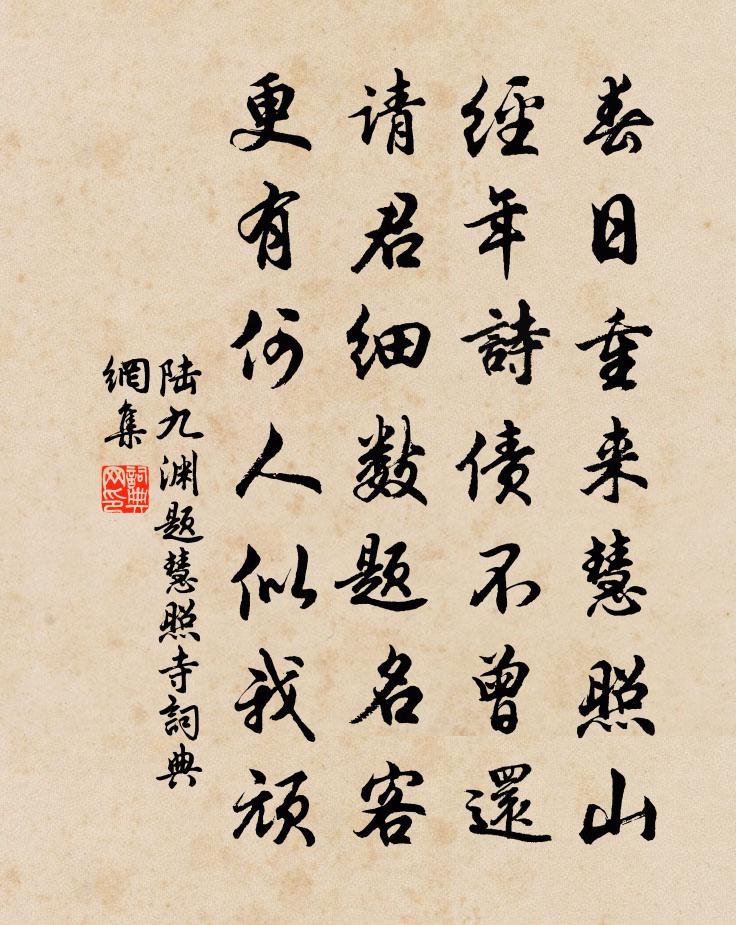 春日重来慧照山
經年詩債不曾還
请君细数题名客
更有何人似我顽
陆九渊题慧照寺詞典
網集
詞典
网印